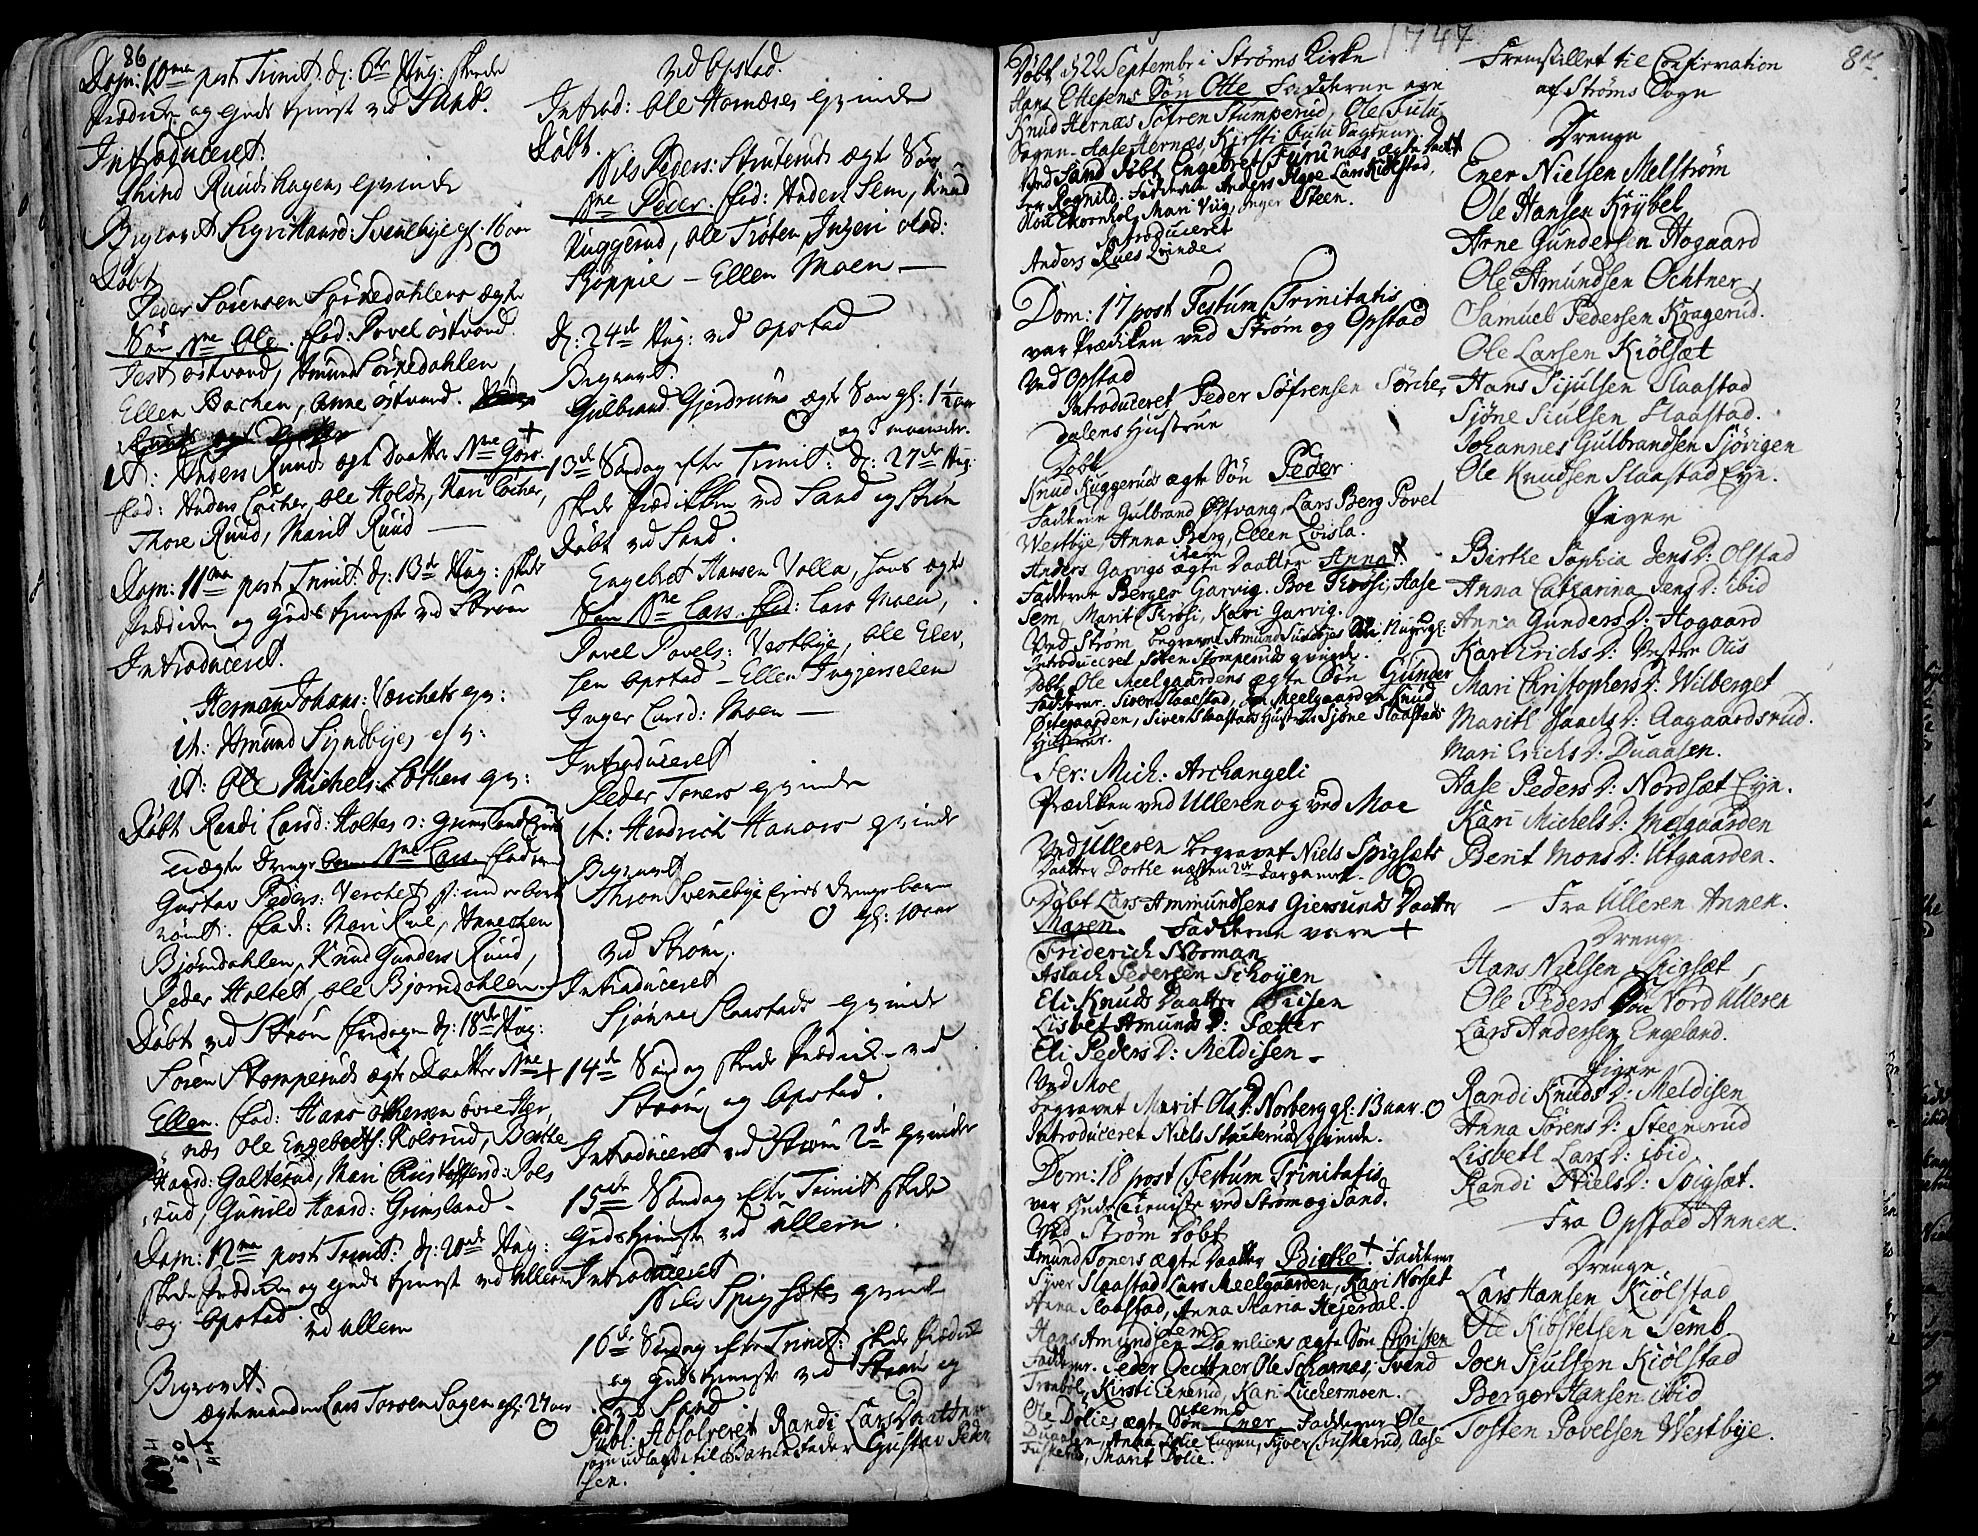 86
Dom: 10ma post Trinit: d: 6te Aug: skede
Prædiken og Guds tjeneste ved Sand.
Introduceret:
Ruudshagens qvinde
Begravet Sigri Haard: Svenebye gl: 16 aar
Døbt
Peder Sörensen Sörkedahlens ægte
Sön Nne Ole. fad: Povel östvand
Jest östvand, Amund Sörkedahlen
Ellen Bachen, Anne östvand.
it: Anders Ruuds ægte daatter Nne Goro.
fad: Anders Løcher, Ole Holst, Kari Löcher,
Thore Ruud, Marit Ruud
Dom: 11ma post Trinit: d: 13de Aug: skede
Prædiken og Guds tjeneste ved Ström
Introduceret.
Herman Johans: Verchets qv:
it: Amund Syndbyes qv:
it: Ole Michels: Löthens qv:
Döbt Randi Larsd: Holtes v: Grimsland
uægte drenge barn Nne Lars.
Gustav Peders: Verchet
römt. fad: Mari Rue, Annechen
Björndahlen, Knud Gunders: Ruud,
Peder Holtet, Ole Bjorndahlen.
Döbt ved Ström fredagen d: 18de Aug:
Sören Stomperuds ægte Daatter Nne
Ellen. fad: Hans Ottersen övre Her,
næs Ole Engebrets: Kolsrud, Berthe
Hansd: Galterud, Mari Christoffersd: Pols
rud, Gunild Hansd: Grimsland.
Dom: 12ma post Trinit: d: 20de Aug:
skede Prædiken og Guds tjeneste ved Ullern
og Opstad.
ved Ullern
Begravet:
ægtemanden Lars Torsen Sagen gl: 27 aar
ved Opstad.
Introd: Ole Hornæses qvinde
Döbt.
Nils Peders: Struteruds ægte Sön
Nne Peder. fad: Anders Sem, Knud
Kuggerud, Ole Tröten, Ingeri Olsd:
Skjöppie - Ellen Moen
d: 24de Aug: ved Opstad
Begravet
Gulbrand Gjerdrums ægte Sön gl: 1½ aar
og 3 maaneder.
13de Söndag efter Trinit: d: 27de Aug:
skede Prædikken ved Sand og Ström
Döbt ved Sand.
Engebret Hansen Volla, hans ægte
Sön Nne Lars. fad: Lars Moen,
Povel Povels: Vestbye, Ole Elev,
sen Opstad - Ellen Ingjerselen
Inger Larsd: Moen
Introduceret
Peder Toners qvinde
it: Hendrich Hanors qvinde
Begravet
Thron Svenebye Eies drenge barn
gl: 10 aar
ved Ström.
Introduceret
Sjönne Slaastads qvinde
14de Söndag skede Prædiken ved
Ström og Opstad.
Introduceret ved Ström 2de qvinder
15de Söndag efter Trinit: skede
Guds tjeneste ved Ullern.
Introduceret
Nils Spigsets qvinde
16de Söndag efter Trinit: skede Prædiken
og Guds tjeneste ved Ström og
ved Sand
Publ: Absolveret Randi LarsDaatter
som udlagde til Barnefader Gustav Peder
sen.
1747
Döbt d 22 Septembr i Ströms Kirke
Hans Ottesens Sön Otte Fadderne ere
Knud Hernæs Söfren Stumperud, Ole Fulu
Sagen. Aase Hernæs, Kirsti Fulu Sagen.
Ved Sand Döbt Engebret Furunæs ægte Daat
ter Rognild. Fadderne Anders Lars Kiölstad,
Ekornhol, Mari Vug, Inger Steen.
Introduceret
Anders Rues Qvinde.
Dom: 17 post Festum Trinitatis
var Prædiken ved Ström og Opstad
Ved Opstad
Introduceret Peder Söfrensen Sörche,
dalens Hustrue
Döbt
Knud Kuggeruds ægte Sön Peder.
Fadderne Gulbrand Östvang, Lars Berg Povel
Westbye, Anna Berg, Ellen Qvisla.
item
Anders Garvigs ægte Daatter Anna
Fadderne Berger Garvig. Boe Trösi, Aase
Sem, Marit Trösi, Kari Garvig.
Ved Ström begravet Amund Sundbyes
Introduceret Sören Stomperuds qvinde.
Döbt Ole Meelgaardens ægte Sön Gunder
Fadderne. Siver Slaastad, Meelgaarden Knud
Östgaarden, Siver Slaastads Hustrue Sjöne Slaastads
Hustrue.
Fer: Mich: Archangeli
Prædiken ved Ulleren og ved Moe
Ved Ulleren begravet Niels Spigsets
Daatter Dorthe næsten 2 aar gamel.
Döbt Lars Ammundsens Giersunds Daatter
Maren. Fadderne vare
Friderich Norman
Aslach Pedersen Schöyen
Eli Knuds Daatter Disen
Lisbet Amunds D: Sætter
Eli Peders D: Meldisen
Ved Moe
begravet Marit Ols D: Norberg gl: 13 aar.
Introduceret Niels Struteruds qvinde.
Dom: 18 post Festum Trinitatis
var Guds Tieniste ved Ström og Sand.
Ved Ström Döbt
Amund Toners ægte Daatter Birthe. Fadderne
Syver Slaastad Lars Meelgaarden, Kari Norset
Anna Slaastad, Anna Maria Hejerdal.
item
Hans Amundsen Davliens ægte Sön Christen
Fadderne. Peder Oechtner Ole Schornæs, Svend
Tronböl, Kirsti Eenerud, Kari Lückermoen.
item
Ole Dölies ægte Sön Ener Fadderne Ole
Duaalen, Anna Dölie Eugen, Syver Fuskerud, Aase
Fuskerud, Marit Dölie.
87.
Fremstillet til Confirmation
af Ströms Sogn
Drenge
Ener Nielsen Melström
Ole Hansen Krybel
Arne Gundersen Hogaard
Ole Amundsen Ochtner
Samuel Pedersen Kragerud.
Ole Larsen Kiölsæt
Hans Siulsen Slaastad
Sjöne Siulsen Slaastad.
Johannes Gulbrandsen Sjövigen
Ole Knudsen Slaastad Eyn.
Piger
Birthe Sophia Jens D: Olstad
Anna Catharina Jens D: ibid
Anna Gunders D: Hogaard
Kari Erichs D: Vestre Olis
Mari Christophers D: Wilberget
Marith D: Aagaardsrud.
Mari Erichs D: Duaasen.
Aase Peders D: Nordsæt Eyn.
Kari Michels D: Melgaarden
Berit Mons D: Utgaarden.
Fra Ulleren Annex.
Drenge
Hans Nielsen Spigsæt
Ole Peders Sön Nord Ulleren
Lars Andersen Engeland.
Piger
Randi Knuds D: Meldisen
Anna Sörens D: Steenerud
Lisbeth Lars D: ibid
Randi Niels D: Spigsæt.
Fra Opstad Annex.
Drenge
Lars Hansen Kiölstad
Ole Kiöstelsen Semb
Joen Sjulsen Kiölstad
Berger Hansen ibid
Tosten Povelsen Westbye.